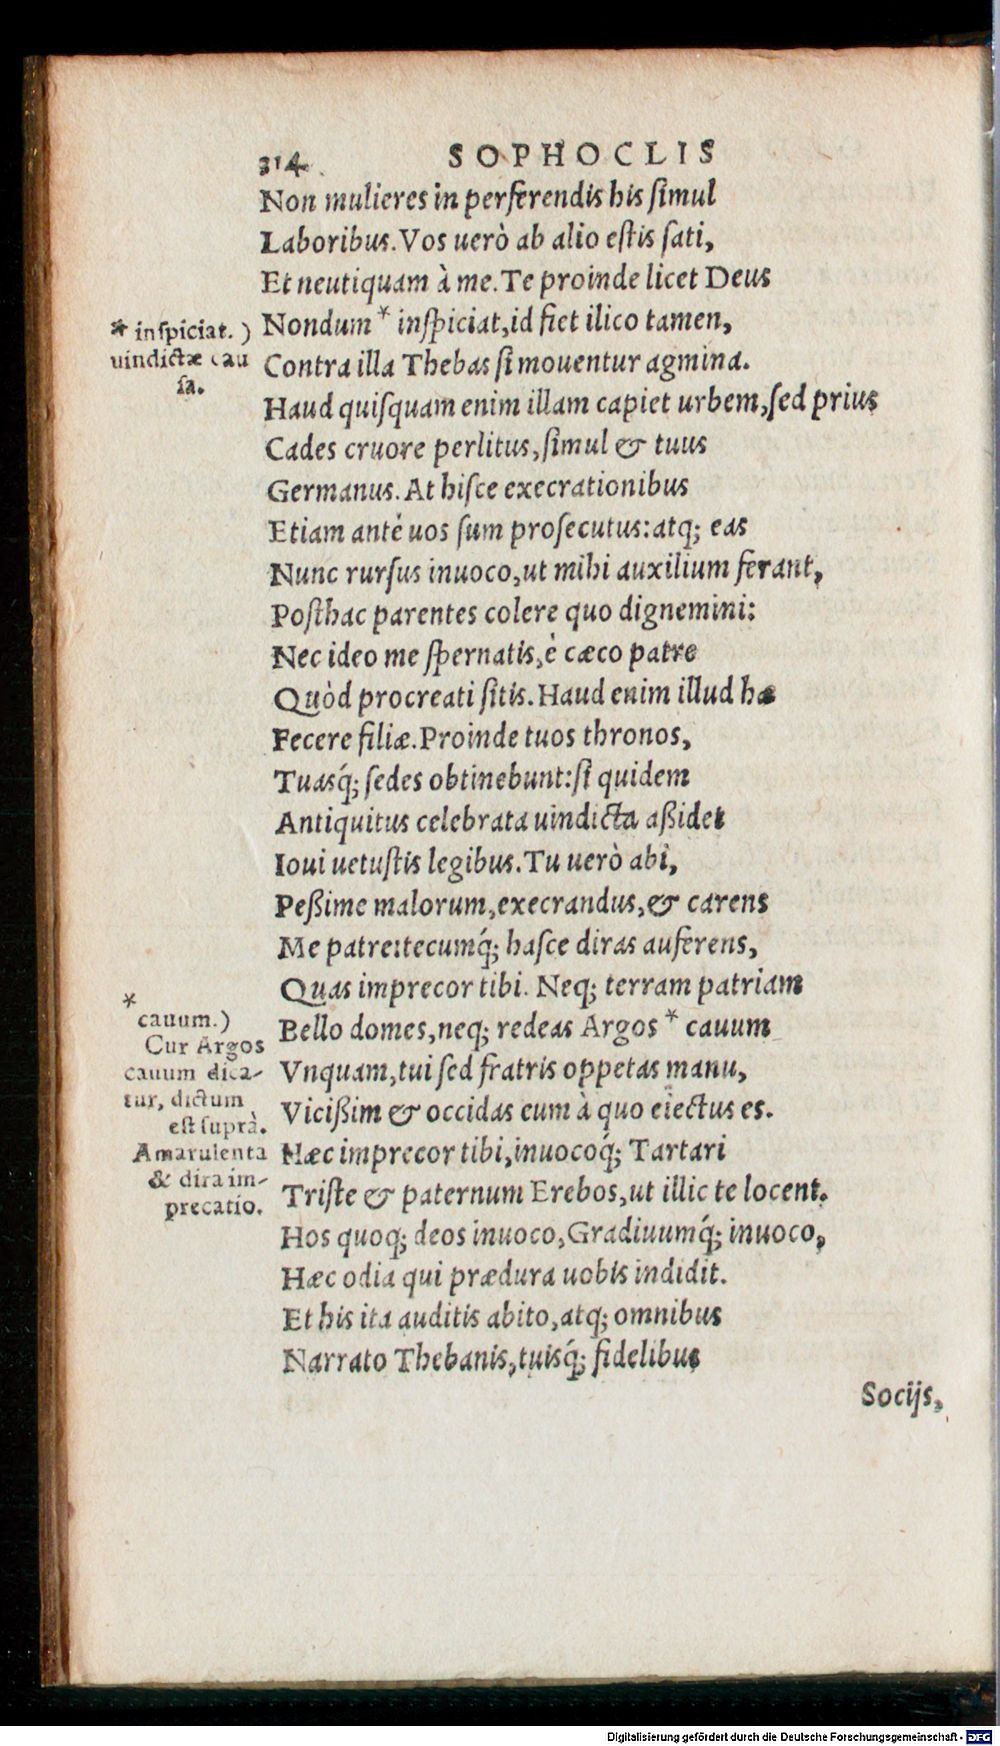 314 SOPHOCLIS
Non mulieres in perferendis his ſimul
Laboribus. Vos uerò ab alio eſtis ſati,
Et neutiquam à me. Te proinde licet Deus
Nondum * inſpiciat, id fiet ilico tamen,
Contra illa Thebas ſi mouentur agmina.
Haud quiſquam enim illam capiet urbem, ſed prius
Cades cruore perlitus, ſimul & tuus
Germanus. At hiſce execrationibus
Etiam antè uos ſum proſecutus: atq; eas
Nunc rurſus inuoco, ut mihi auxilium ferant,
Poſthac parentes colere quo dignemini:
Nec ideo me ſpernatis, è cæco patre
Quòd procreati ſitis. Haud enim illud hæ
Fecere filiæ. Proinde tuos thronos,
Tuasq́; ſedes obtinebunt: ſi quidem
Antiquitus celebrata uindicta aßidet
Ioui uetuſtis legibus. Tu uerò abi,
Peßime malorum, execrandus, & carens
Me patre: tecumq́; haſce diras auferens,
Quas imprecor tibi. Neq; terram patriam
Bello domes, neq; redeas Argos * cauum
Vnquam, tui ſed fratris oppetas manu,
Vicißim & occidas eum à quo eiectus es.
Hæc imprecor tibi, inuocoq́; Tartari
Triſte & paternum Erebos, ut illic te locent.
Hos quoq; deos inuoco, Gradiuumq́; inuoco,
Hæc odia qui prædura uobis indidit.
Et his ita auditis abito, atq; omnibus
Narrato Thebanis, tuisq́; fidelibus
Socijs,
* inſpiciat. )
uindictæ cau
ſa.
*
cauum. )
Cur Argos
cauum dica-
tur, dictum
eſt ſuprà.
Amarulenta
& dira im-
precatio.
Digitalisierung gefördert durch die Deutsche Forschungsgemeinschaft - DFG